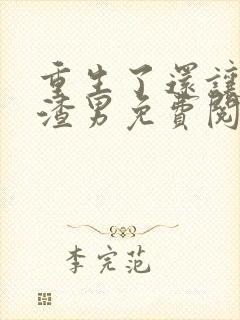 重生了還讓
渣男免費閱
李完范